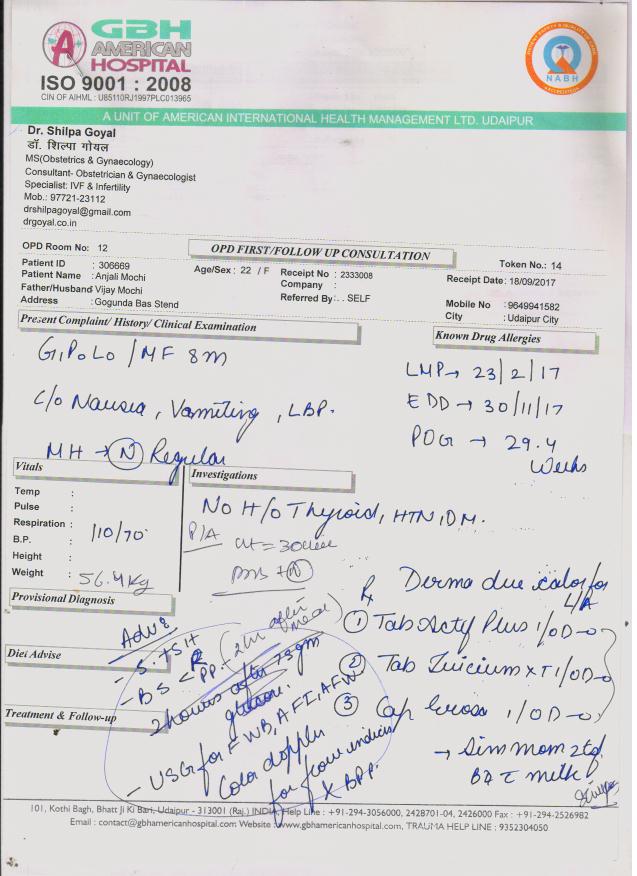 GBH
AMERICAN
HOSPITAL
ISO 9001 : 2008
CIN OF AIHML : U85110RJ1997PLC013965
NABH
A UNIT OF AMERICAN INTERNATIONAL HEALTH MANAGEMENT LTD. UDAIPUR
Dr. Shilpa Goyal
डॉ. शिल्पा गोयल
MS(Obstetrics & Gynaecology)
Consultant- Obstetrician & Gynaecologist
Specialist: IVF & Infertility
Mob.: 97721-23112
drshilpagoyal@gmail.com
drgoyal.co.in
OPD Room No: 12
OPD FIRST/FOLLOW UP CONSULTATION
Token No.: 14
Patient ID : 306669
Age/Sex : 22 / F
Receipt No : 2333008
Receipt Date : 18/09/2017
Patient Name : Anjali Mochi
Company :
Father/Husband Vijay Mochi
Referred By : . SELF
Mobile No : 9649941582
Address : Gogunda Bas Stend
City : Udaipur City
Present Complaint/ History/ Clinical Examination
Known Drug Allergies
G1P0L0 / MF 8m
LMP → 23/2/17
C/o Nausea, Vamiting, LBP.
EDD → 30/11/17
MH → N Regular
POG → 29.4
Weeks
Vitals
Investigations
Temp :
Pulse :
Respiration :
B.P. : 110/70
Height :
Weight : 56.4 Kg
No H/o Thyroid, HTN, DM.
P/A
Provisional Diagnosis
Rx
Adv:
① Tab Plus 1/OD
Diet Advise
- BS PP - (2hr after meal)
② Tab XT 1/OD
2hours after 75gm
glucose.
Treatment & Follow-up
③ Cap 1/OD
- USG for FWB, AFI, AFW
Color doppler
for flow indices
X BPP.
→ Sim mom
milk
101, Kothi Bagh, Bhatt Ji Ki Bari, Udaipur - 313001 (Raj.) INDIA, Help Line : +91-294-3056000, 2428701-04, 2426000 Fax : +91-294-2526982
Email : contact@gbhamericanhospital.com Website : www.gbhamericanhospital.com, TRAUMA HELP LINE : 9352304050